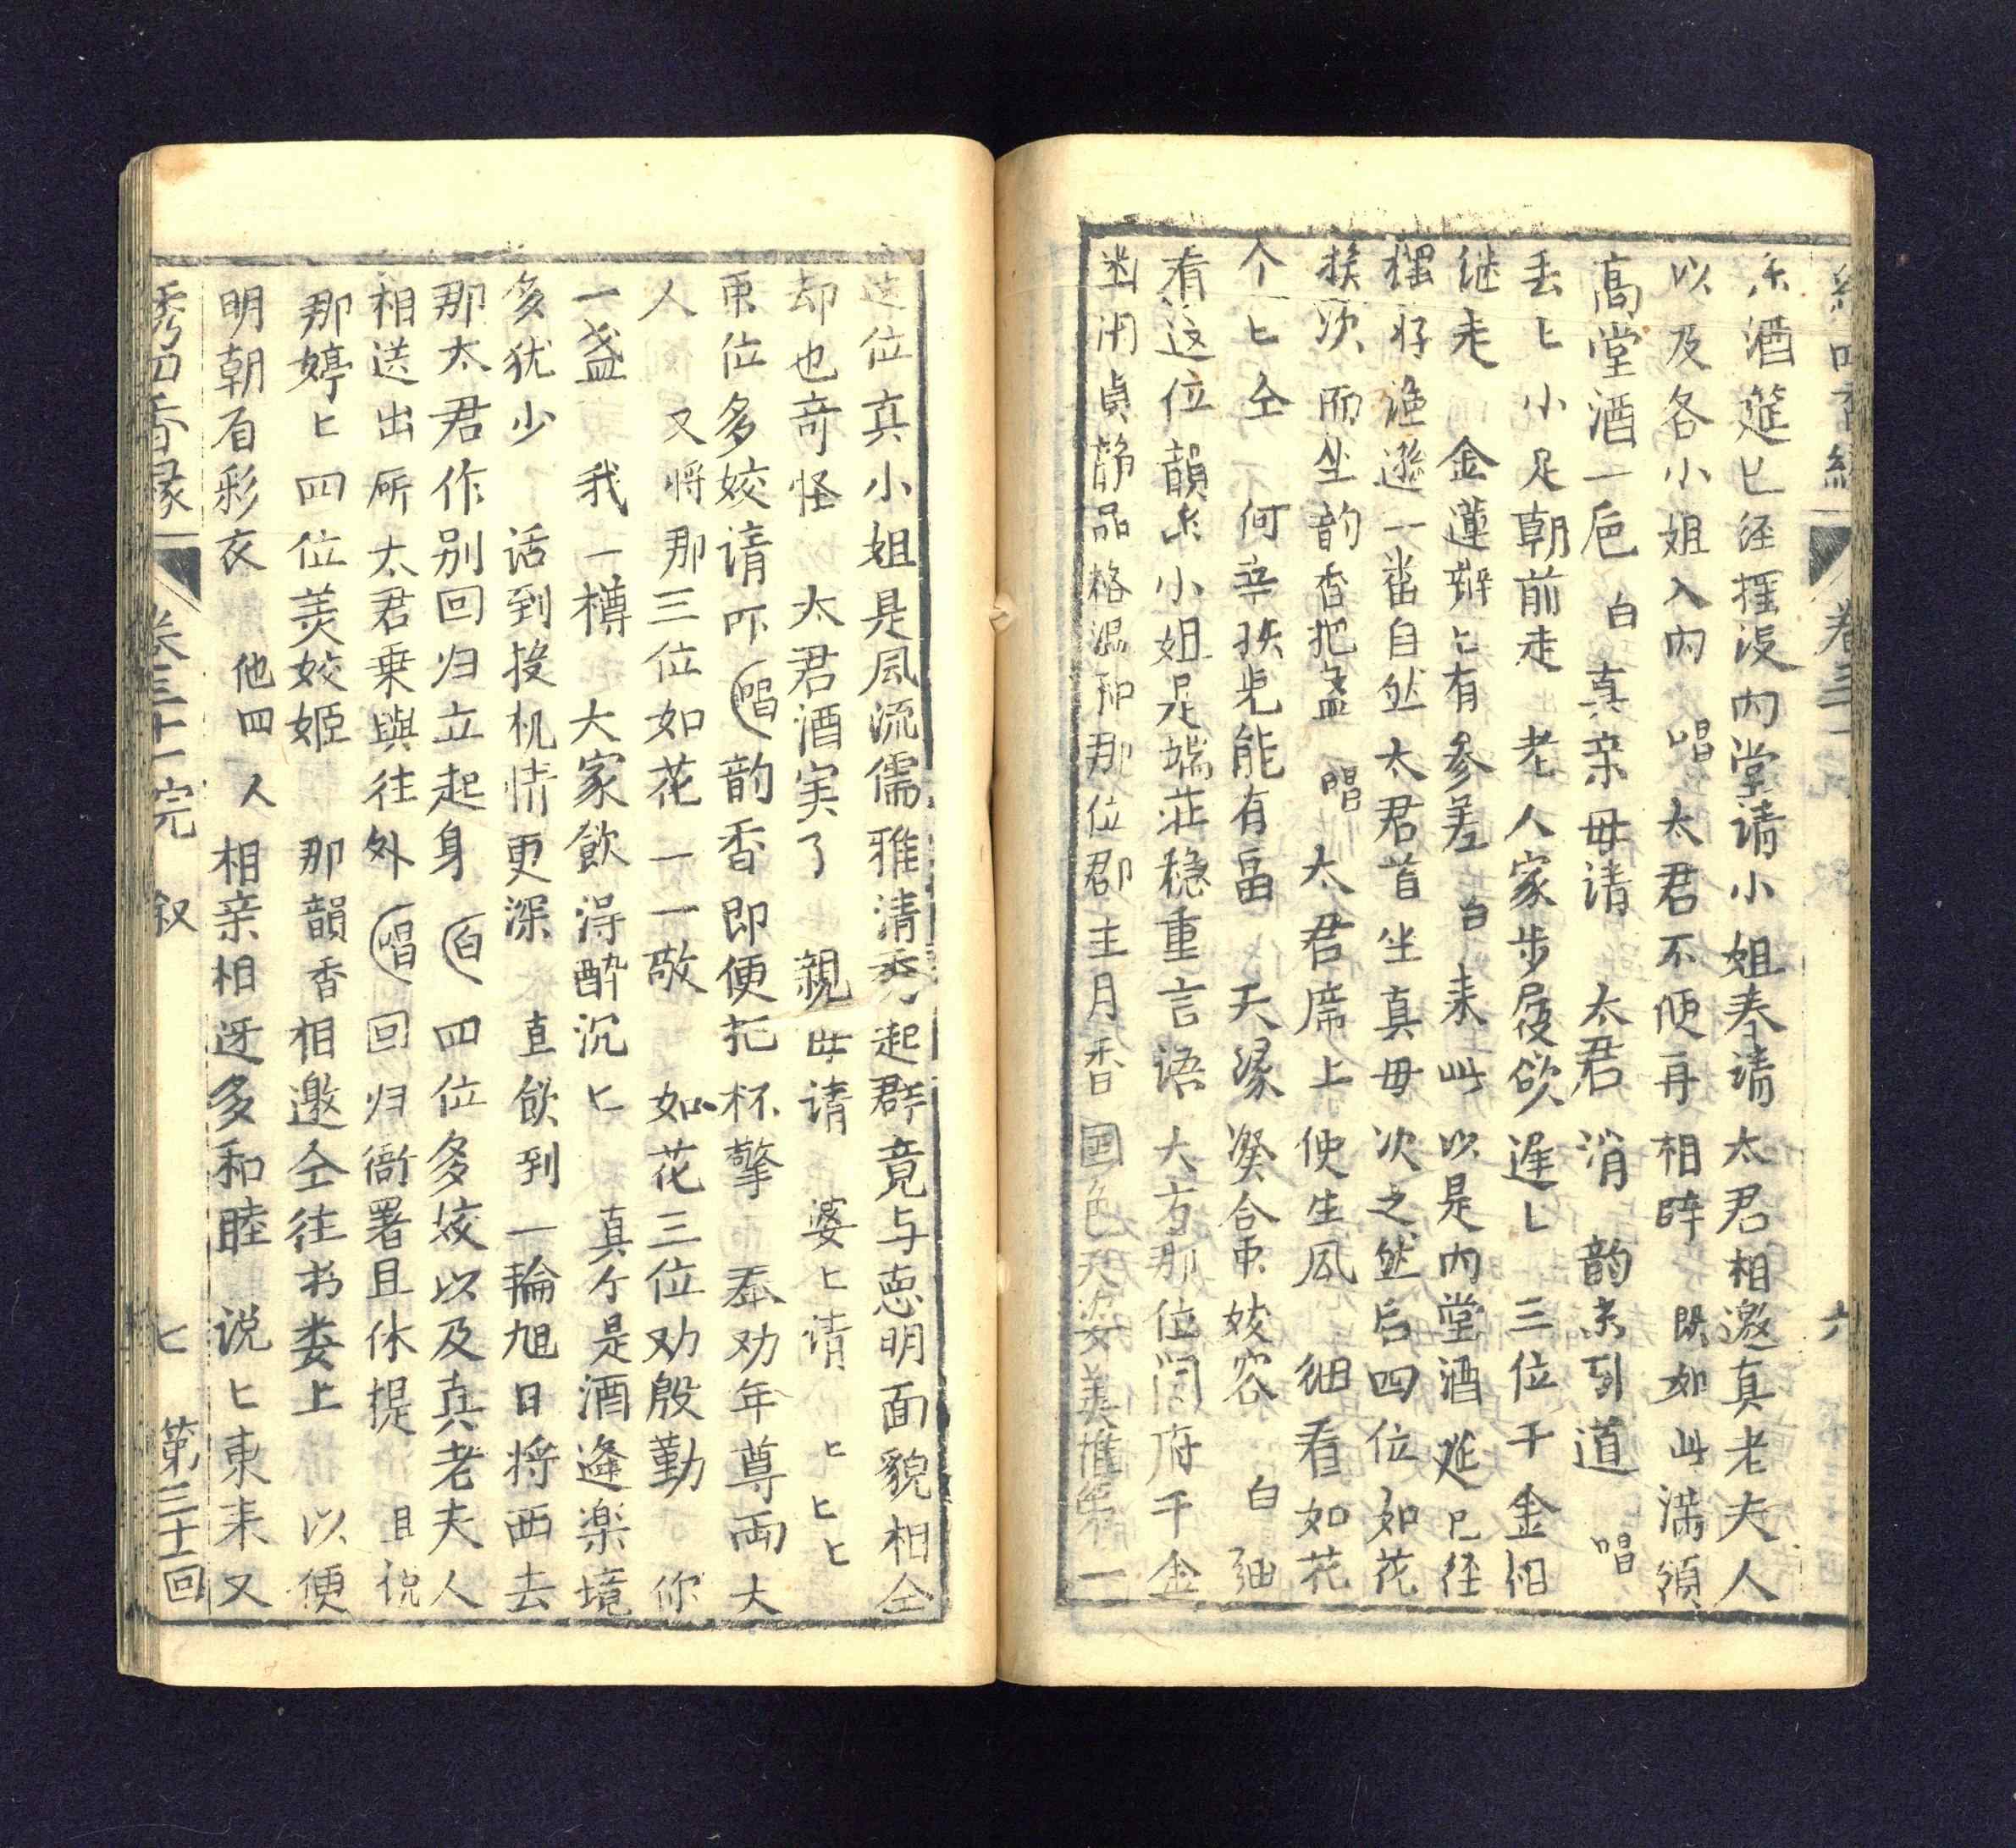 酒筵已经摆设内堂请小姐奉请太君相邀真老夫人
以及各小姐入内 唱 太君不便再相眸 既如此满领
高堂酒一卮 白 真亲毋请 太君 消 韵 引道 唱
丢匕小足朝前走 老人家步履欲遅匕 三位千金相
继走 金蓮瓣匕有参差 白 来此以是内堂酒延已经
摆好 逊一畨自然太君首坐真毋次之然后四位如花
挨次而坐韵香把盏 唱 太君席上便生风 细看如花
个匕仝 何幸 能有畐 天缘凑合 容 白 细
看这位韻 小姐是端莊稳重言语大方那位 府千金
幽用貞静品格温和那位郡主月香国色天姿美推 第一
这位真小姐是風流儒雅清秀起群竟与 明面貌相仝
却也奇怪 太君酒寔了 親毋请 婆匕请 匕匕匕
位多姣请吓 唱 韵香即便把杯擎 奉劝年尊両大
人 又将那三位如花一一敬 如花三位劝殷勤 你
一盏 我一樽 大家飲淂酔沉匕 真个是酒逢楽境
多犹少 话到投机情更深 直飲到一輪旭日将西去
那太君作别回归立起身 白 四位多姣以及真老夫人
相送出 太君乗與往外 唱 回归衙署且休提 且说
那婷匕四位美姣姬 那韻香相邀仝往书娄上 以便
明朝看彩衣 他四人 相亲相迓多和睦 说匕東来又
绣四香縁 卷三十一完 叙 七 第三十一回